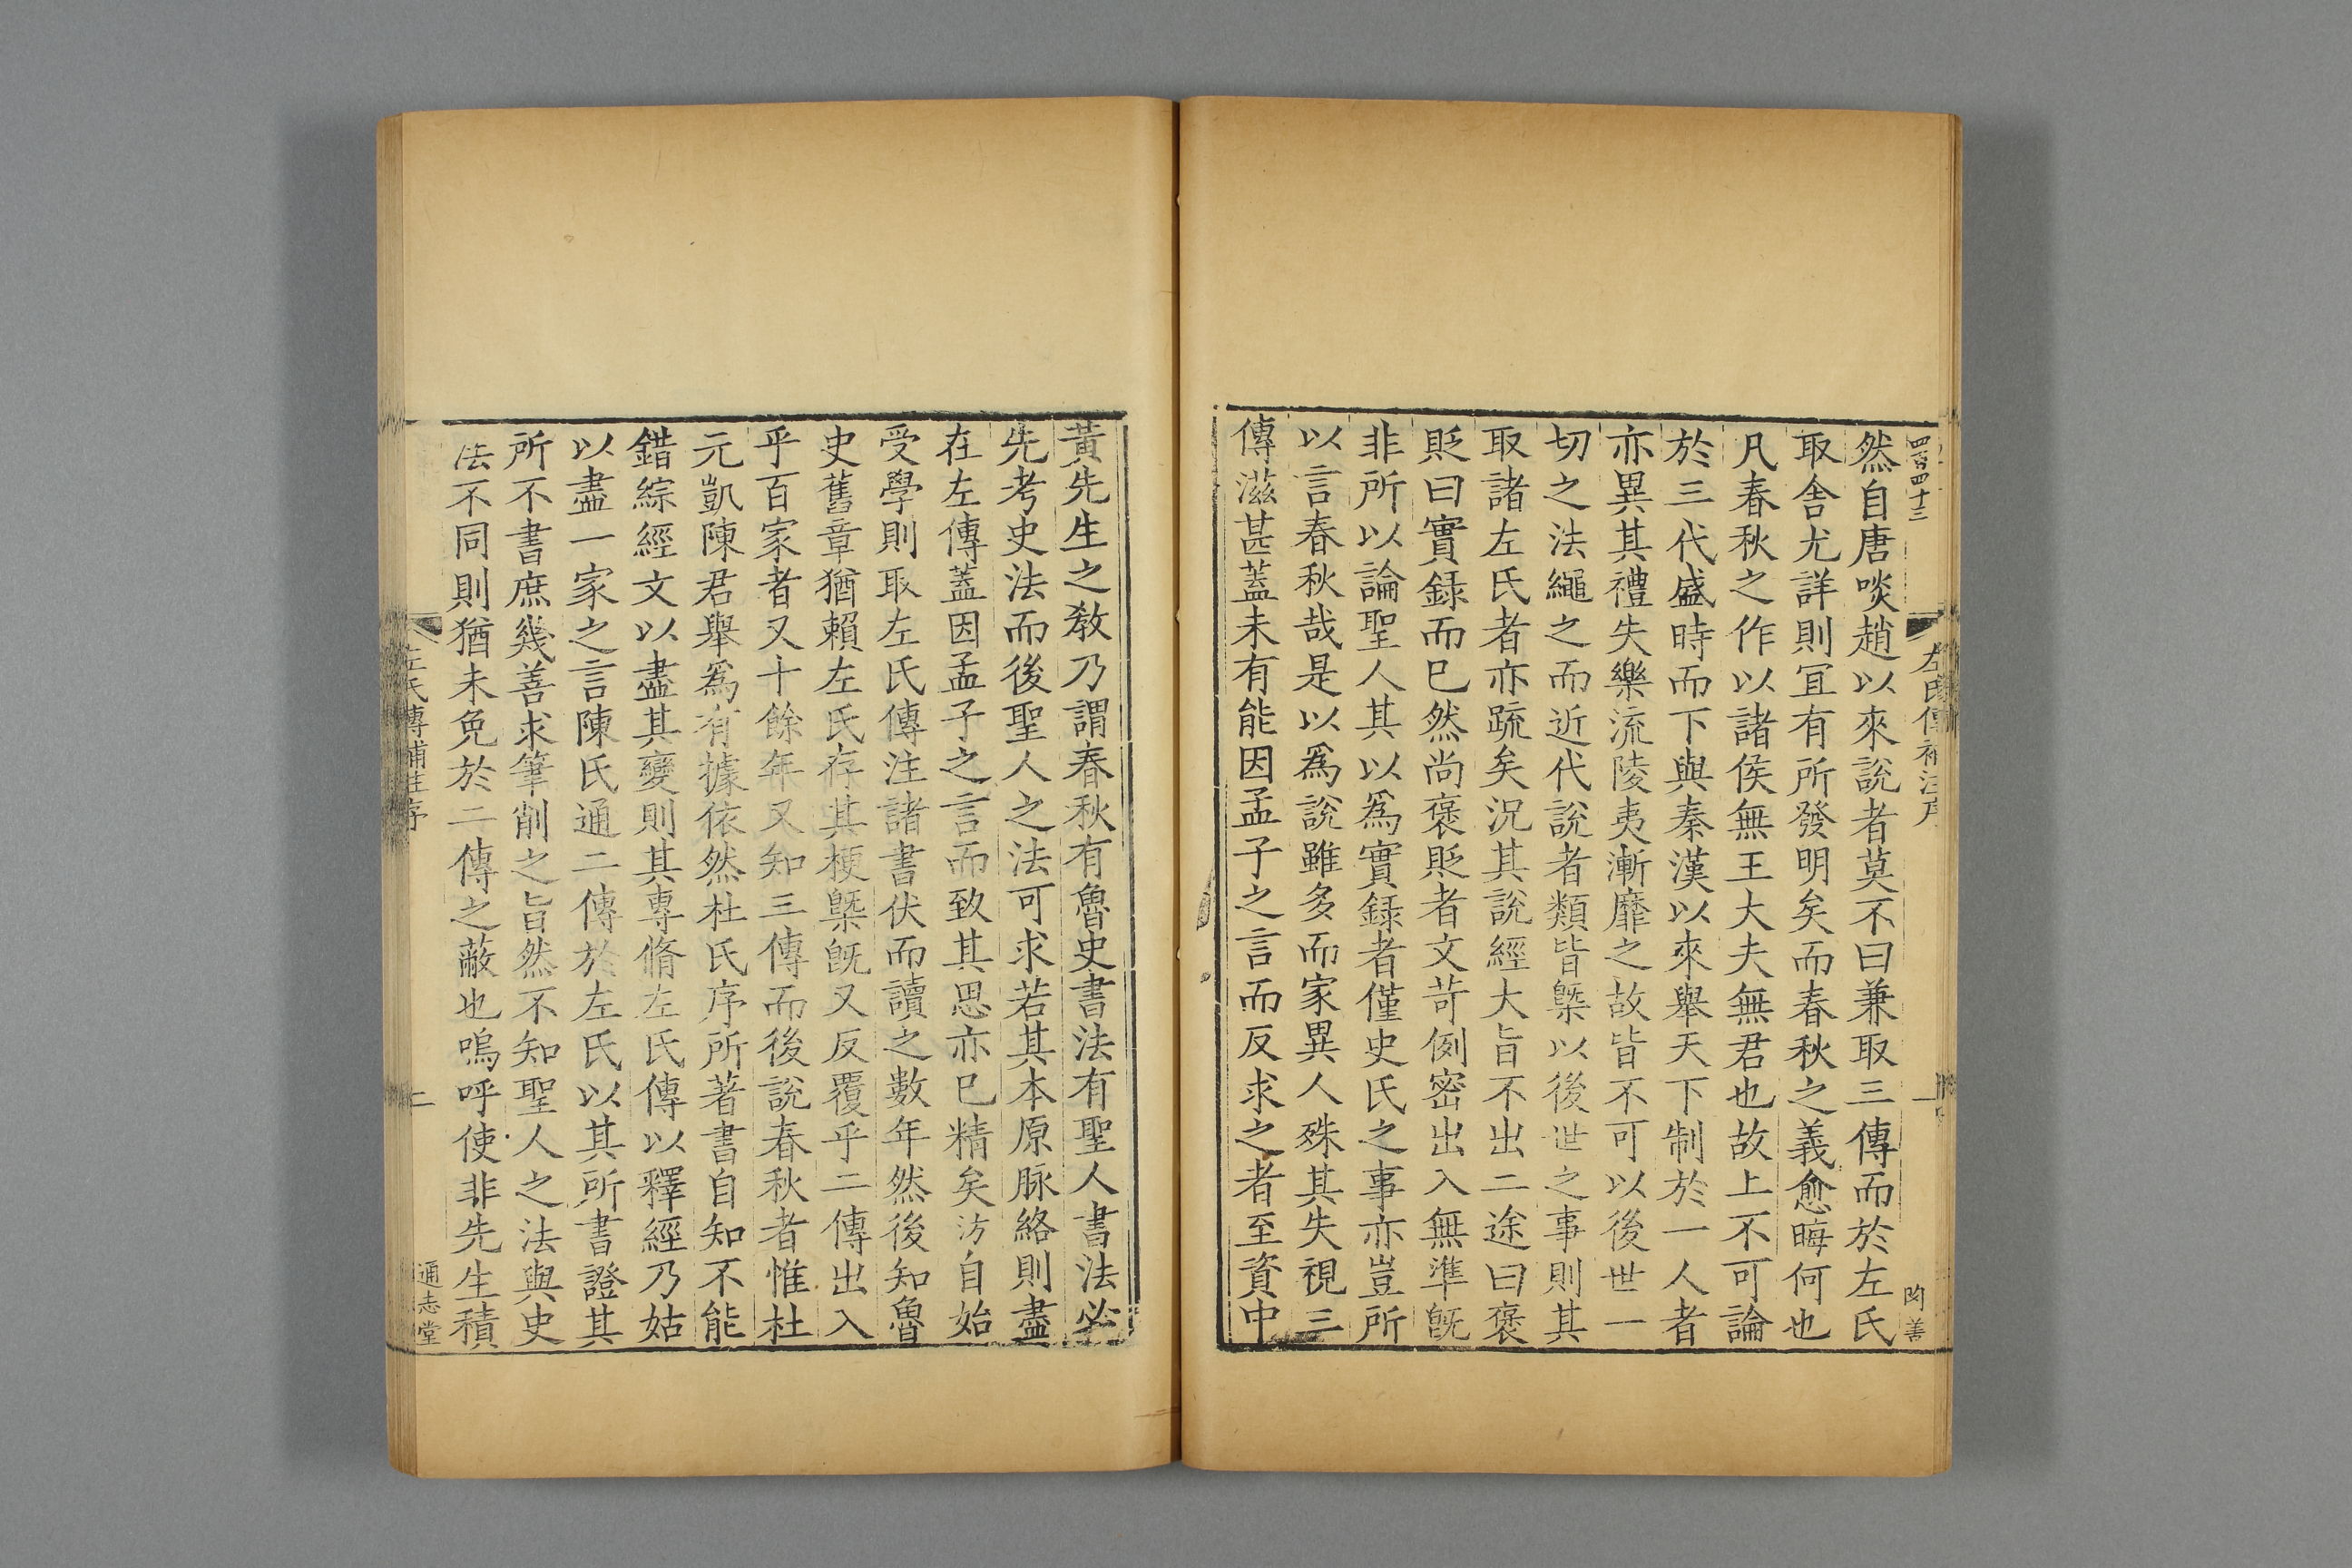 四百四十三
左氏傳補注序
一
然自唐啖趙以來說者莫不曰兼取三傳而於左氏
取舍尤詳則宜有所發明矣而春秋之義愈晦何也
凡春秋之作以諸侯無王大夫無君也故上不可論
於三代盛時而下與秦漢以來舉天下制於一人者
亦異其禮失樂流陵夷漸靡之故皆不可以後世一
切之法繩之而近代說者類皆槩以後世之事則其
取諸左氏者亦疏矣況其說經大旨不出二途曰褒
貶曰實録而已然尚褒貶者文苛例密出入無準旣
非所以論聖人其以爲實録者僅史氏之事亦豈所
以言春秋哉是以爲說雖多而家異人殊其失視三
傳滋甚蓋未有能因孟子之言而反求之者至資中
黃先生之敎乃謂春秋有魯史書法有聖人書法必
先考史法而後聖人之法可求若其本原脉絡則盡
在左傳蓋因孟子之言而致其思亦已精矣汸自始
受學則取左氏傳注諸書伏而讀之數年然後知魯
史舊章猶賴左氏存其梗槩旣又反覆乎二傳出入
乎百家者又十餘年又知三傳而後說春秋者惟杜
元凱陳君舉爲有據依然杜氏序所著書自知不能
錯綜經文以盡其變則其專脩左氏傳以釋經乃姑
以盡一家之言陳氏通二傳於左氏以其所書證其
所不書庶幾善求筆削之旨然不知聖人之法與史
法不同則猶未免於二傳之蔽也嗚呼使非先生積
左氏傳補注序
二
通志堂